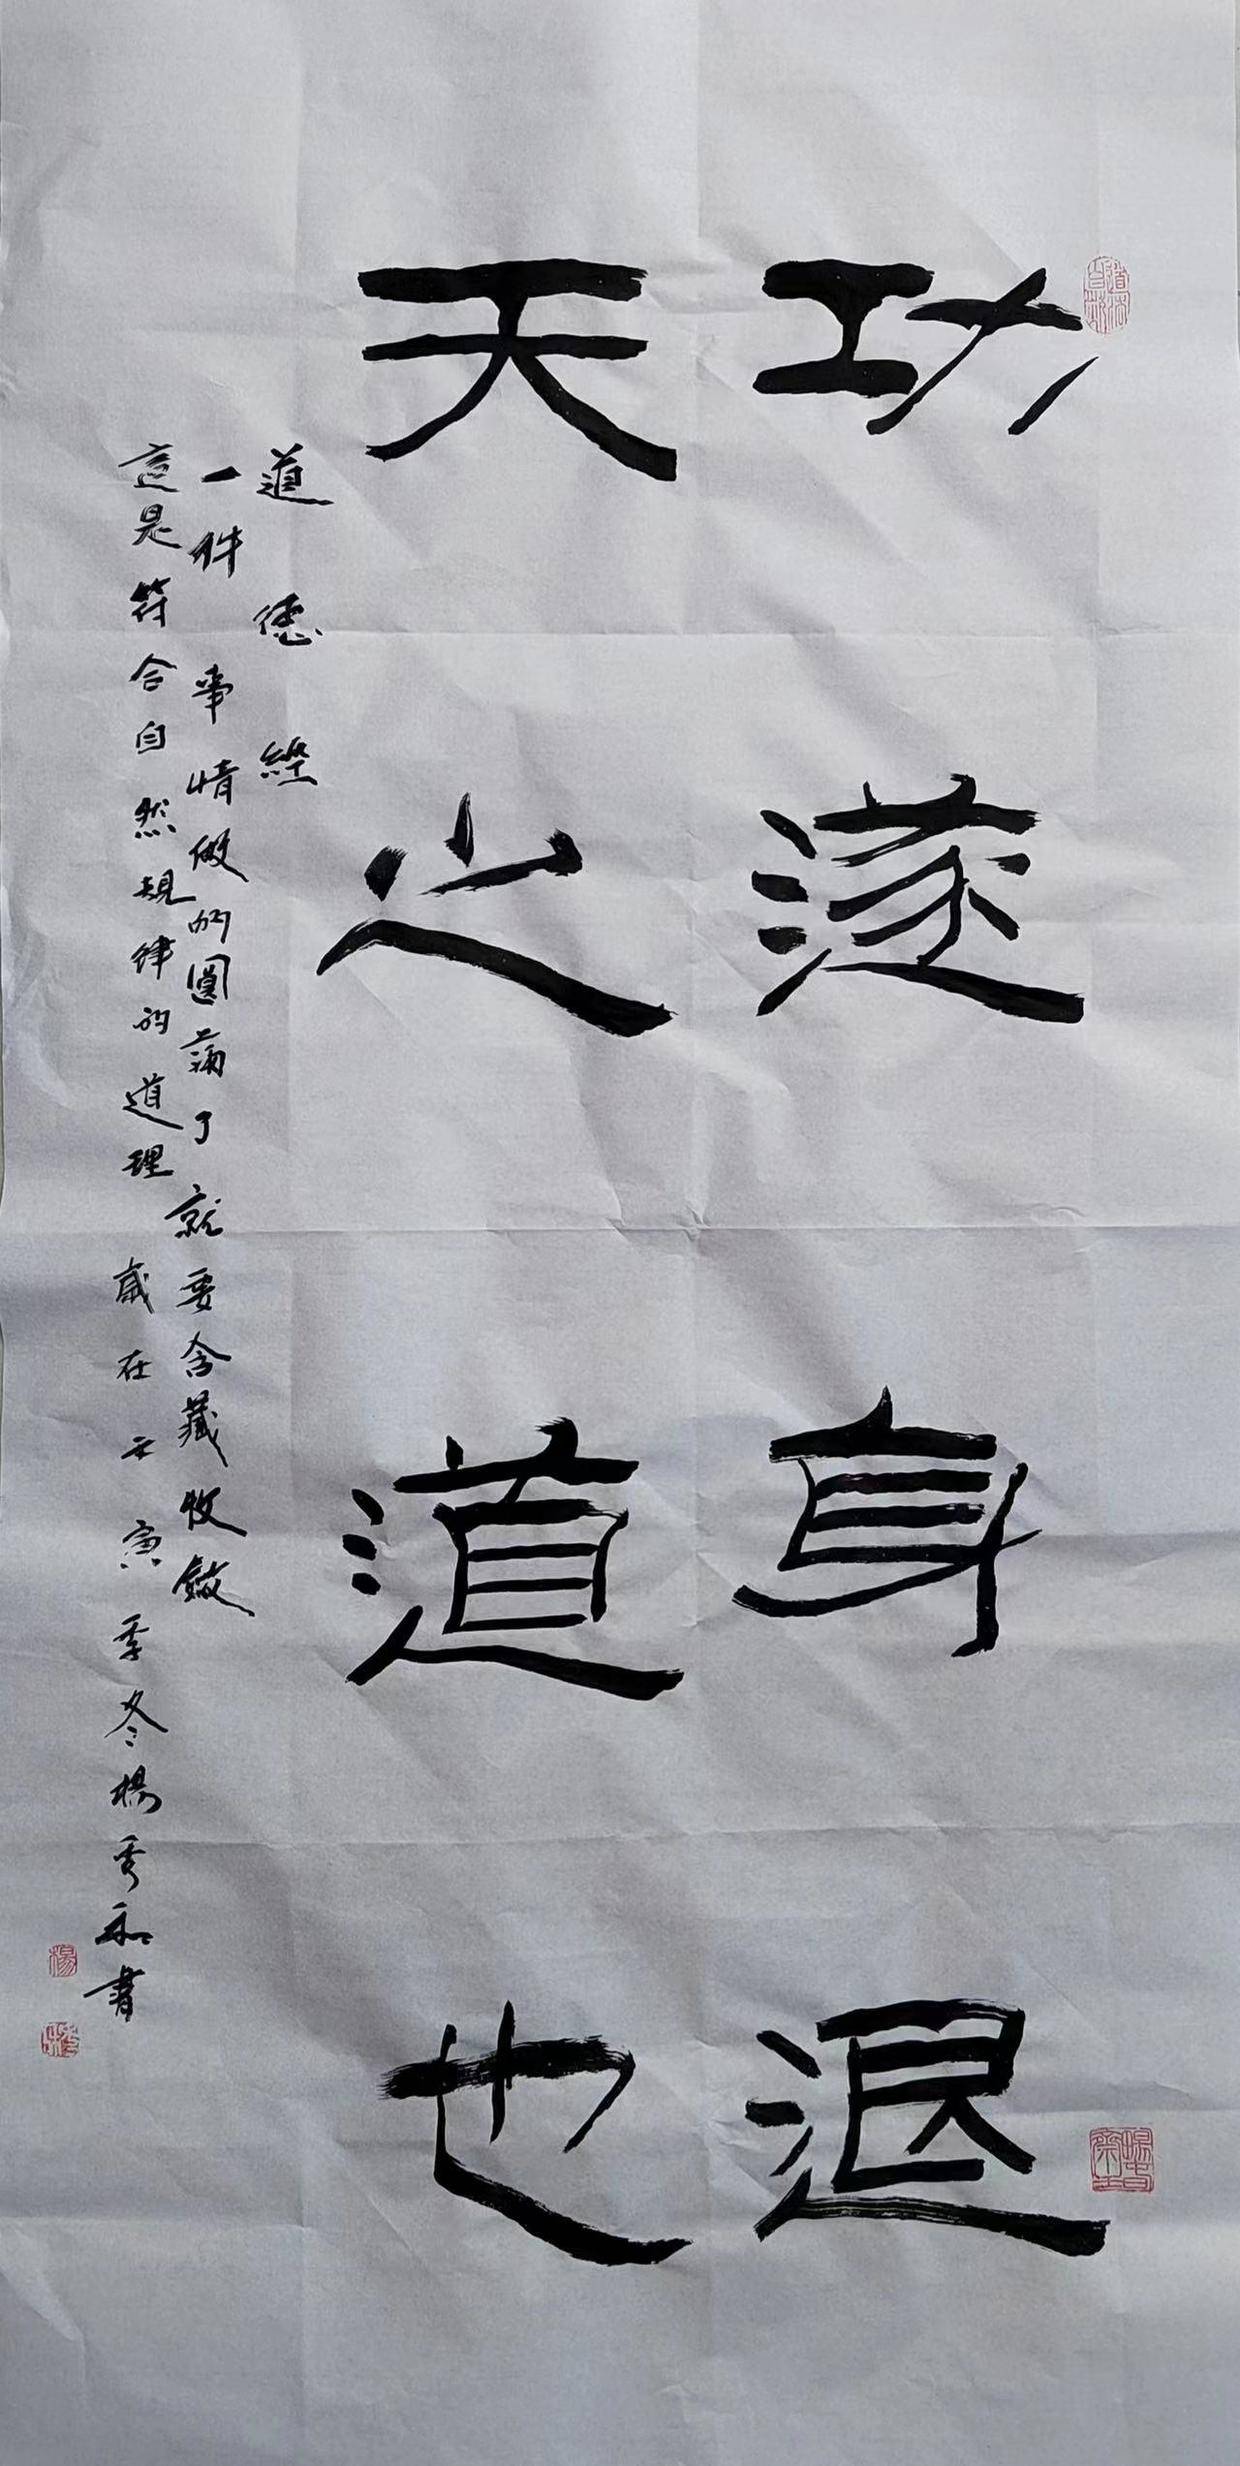 功遂身退
天之道也
道德經
一件事情做的圓滿了就要含藏收斂
這是符合自然規律的道理 歲在壬寅季冬楊秀和書
道法自然
楊